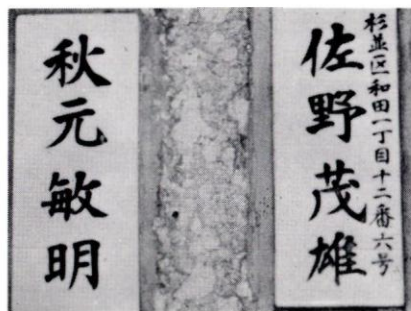 杉並区和田一丁目十二番六号
佐野茂雄
秋元敏明